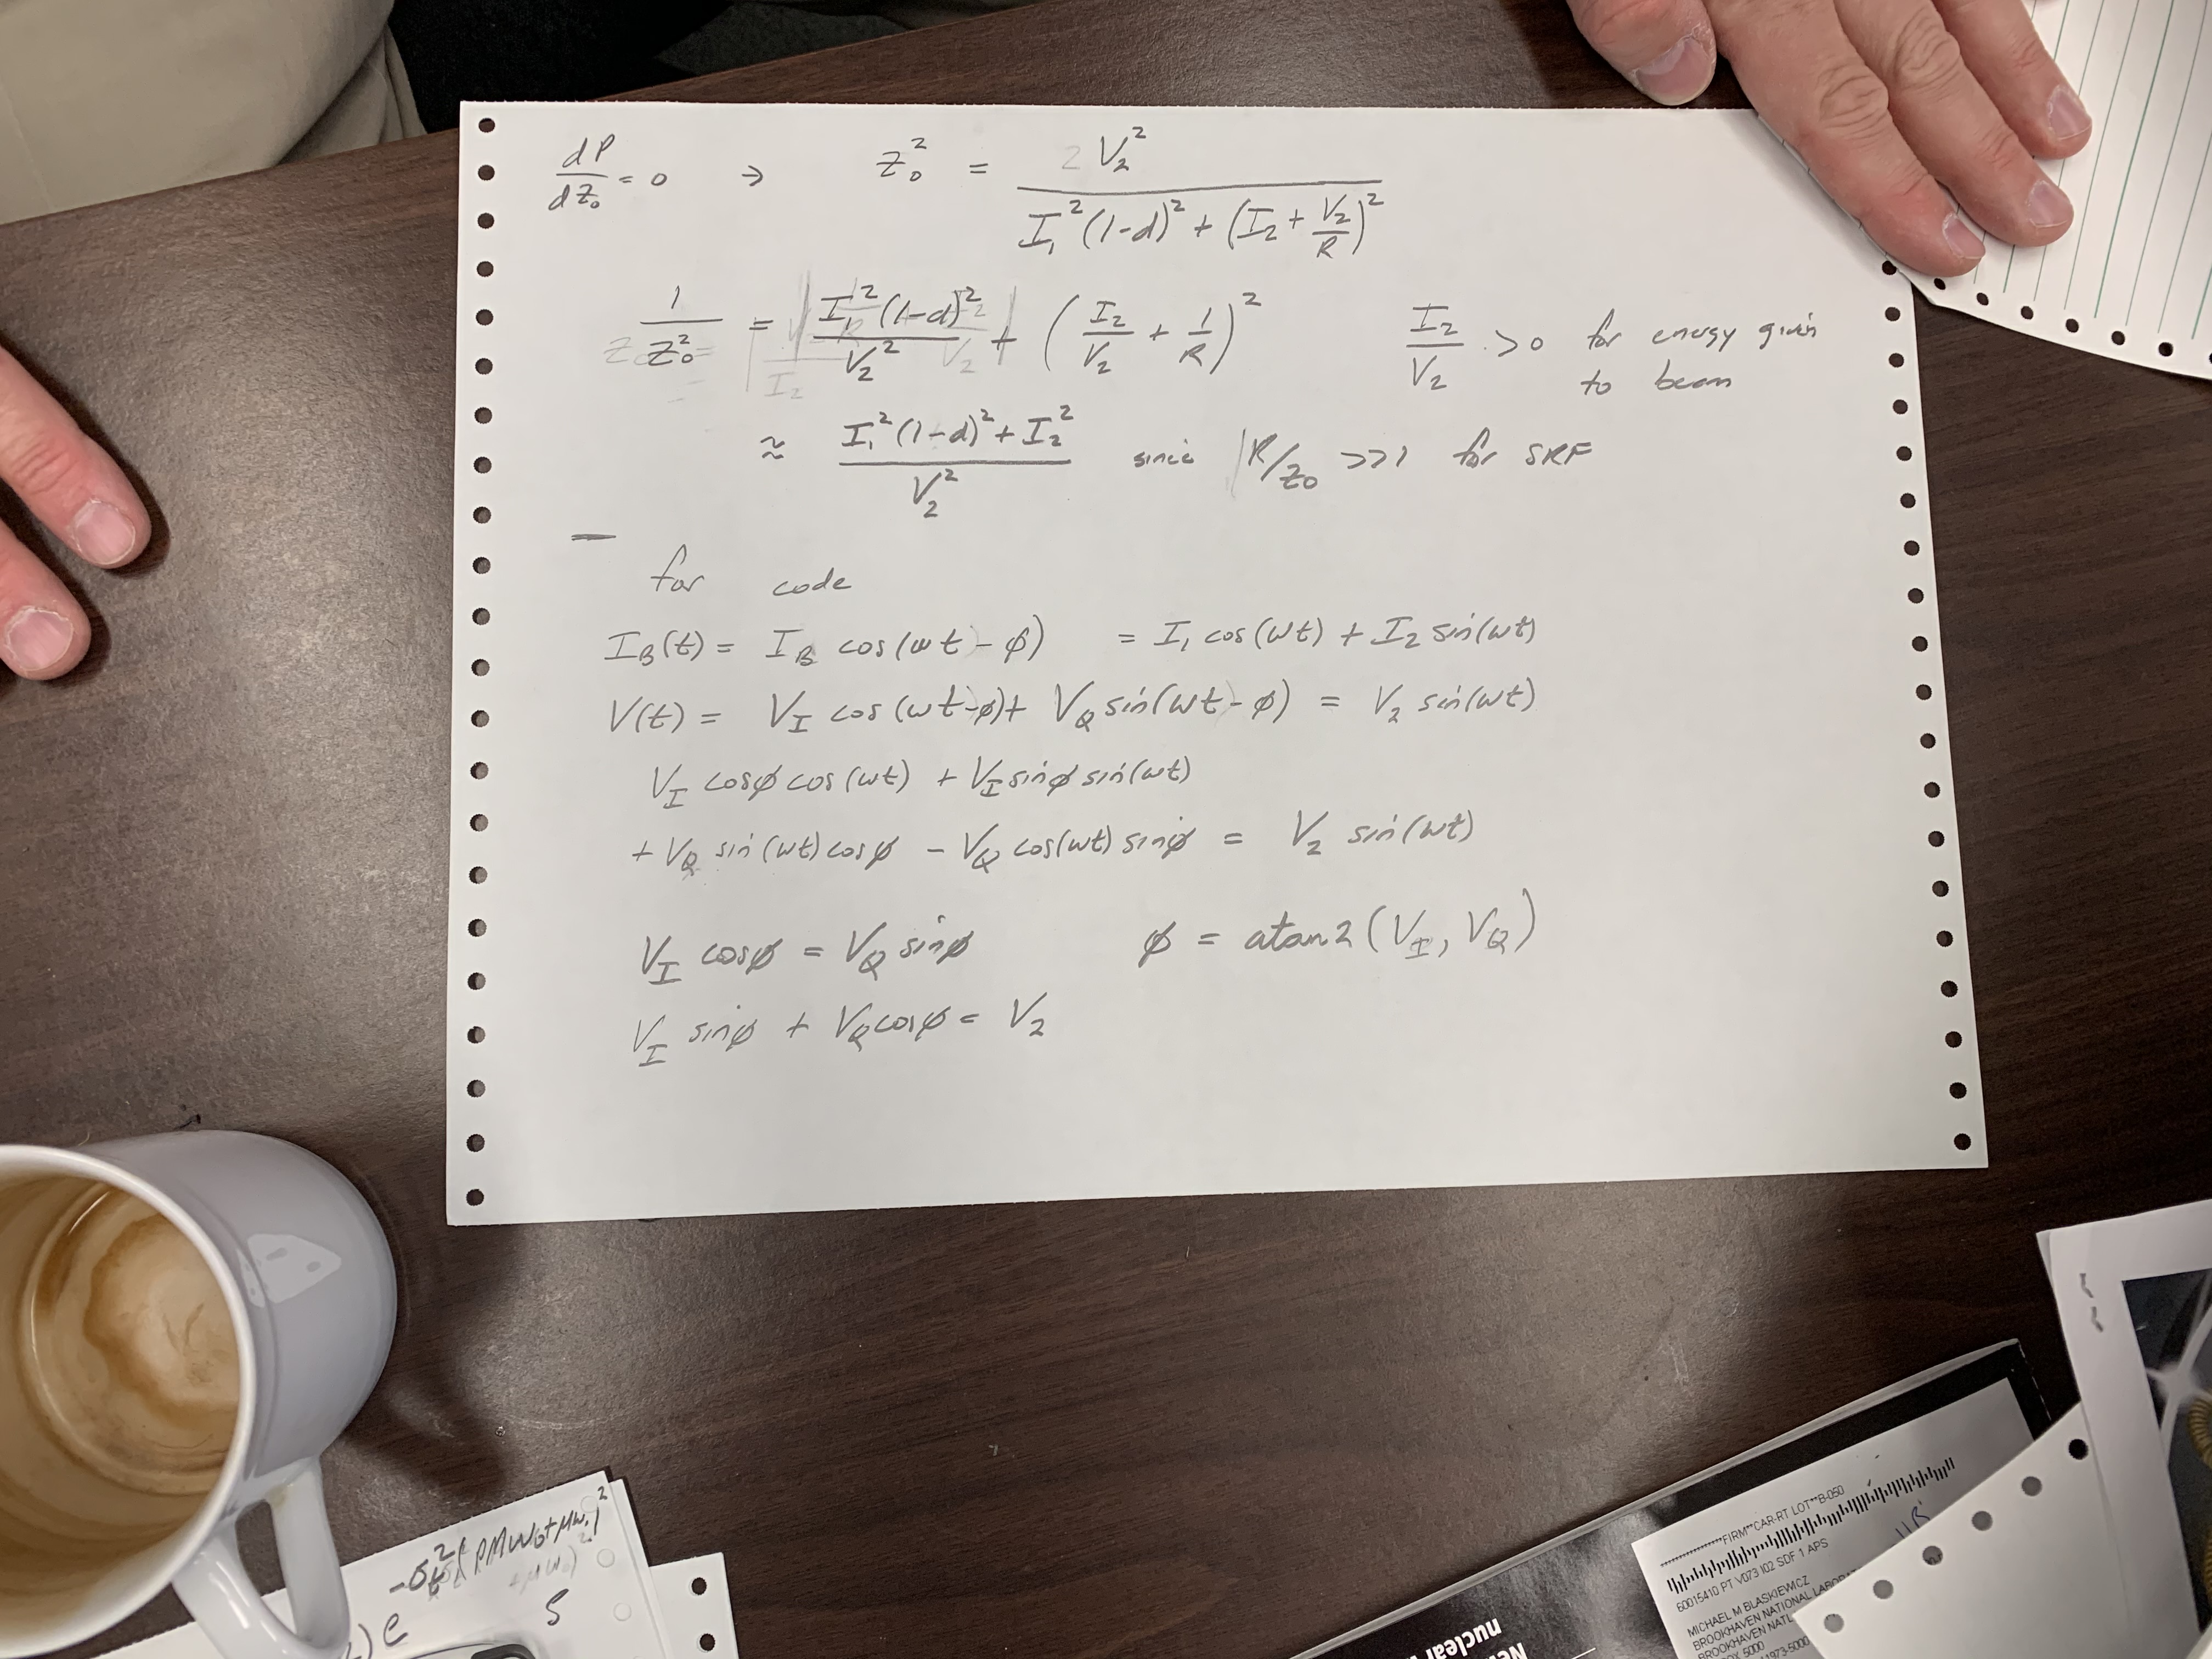 dP/dZ₀ = 0 → Z₀² = V₂² / (I₁²(1-d)² + (I₂ + V₂/R)²)
1/Z₀² = I₁²(1-d)²/V₂² + (I₂/V₂ + 1/R)² I₂/V₂ > 0 for energy given
to beam
≈ (I₁²(1-d)² + I₂²)/V₂² since R/Z₀ >>1 for SRF
—
for code
I_B(t) = I_B cos(ωt - φ) = I₁ cos(ωt) + I₂ sin(ωt)
V(t) = V_I cos(ωt-φ) + V_Q sin(ωt-φ) = V₂ sin(ωt)
V_I cosφ cos(ωt) + V_I sinφ sin(ωt)
+ V_Q sin(ωt) cosφ - V_Q cos(ωt) sinφ = V₂ sin(ωt)
V_I cosφ = V_Q sinφ φ = atan2(V_I, V_Q)
V_I sinφ + V_Q cosφ = V₂
5
**FIRM**CAR-RT LOT**B-050
60015410 PT V073 102 SDF 1 APS
MICHAEL M BLASKIEWICZ
BROOKHAVEN NATIONAL
BROOKHAVEN NATL
BOX 5000
11973-5000
nuclear